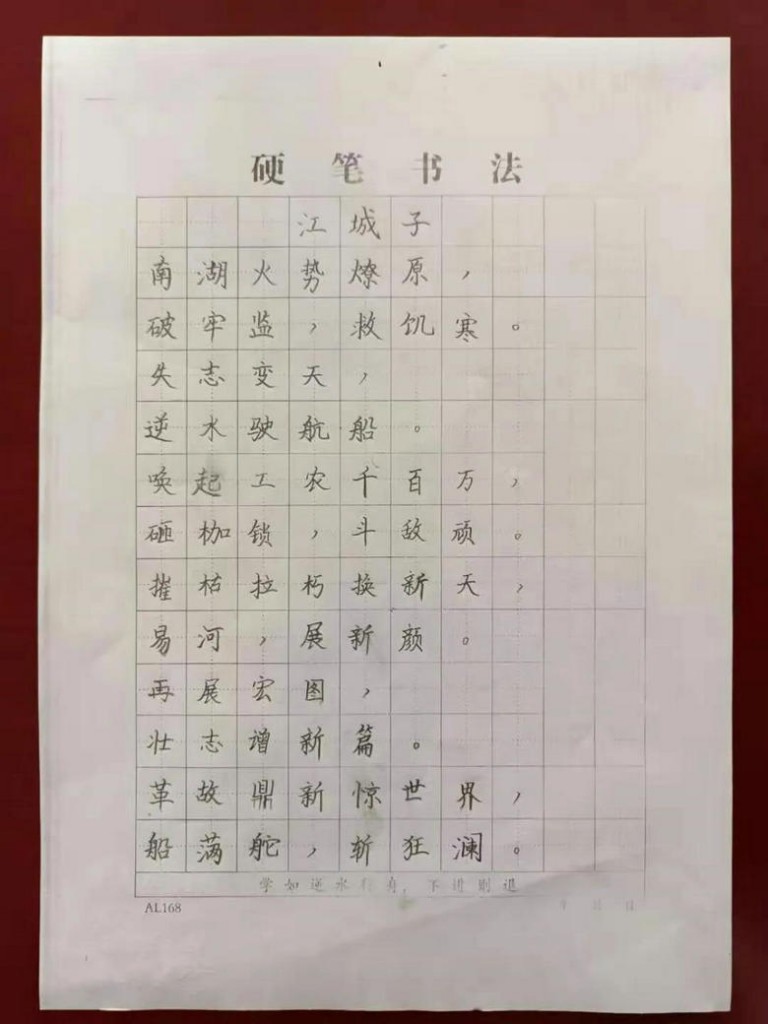 硬笔书法
江城子
南湖火势燎原，
破牢监，救饥寒。
失志变天，
逆水驶航船。
唤起工农千百万，
砸枷锁，斗敌顽。
摧枯拉朽换新天，
易河，展新颜。
再展宏图，
壮志增新篇。
革故鼎新惊世界，
船满舵，斩狂澜。
学如逆水行舟，不进则退
AL168
年 月 日